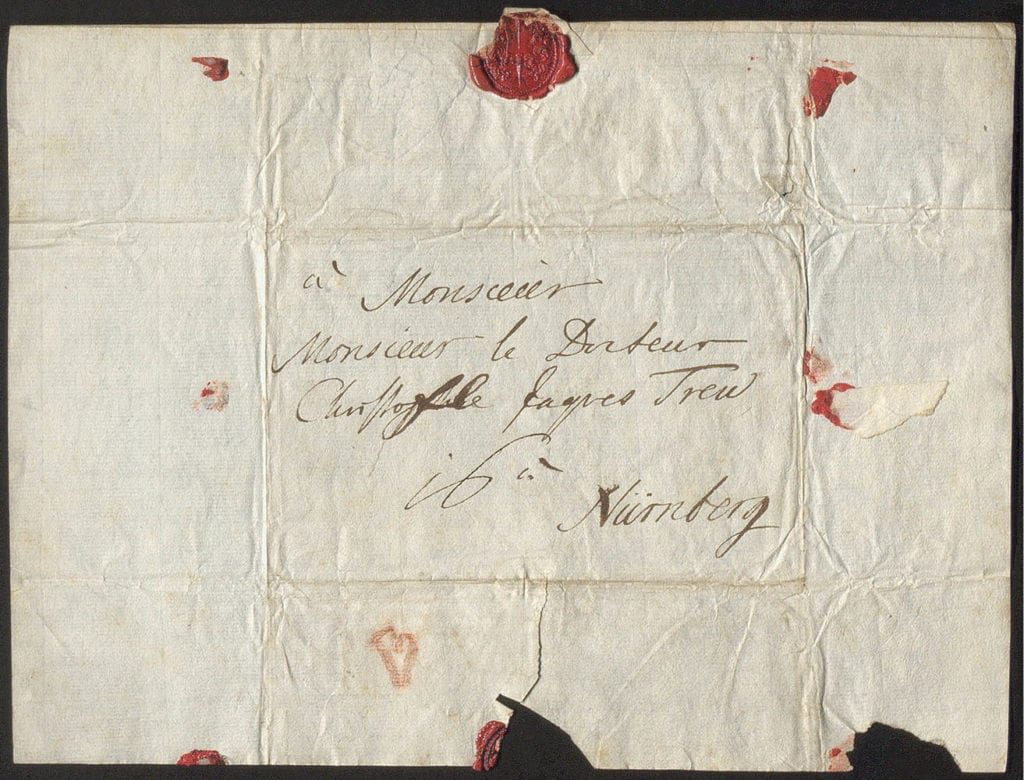 à Monsieur
Monsieur le Docteur
Christophle Jaques Treu
16 à
Nürnberg